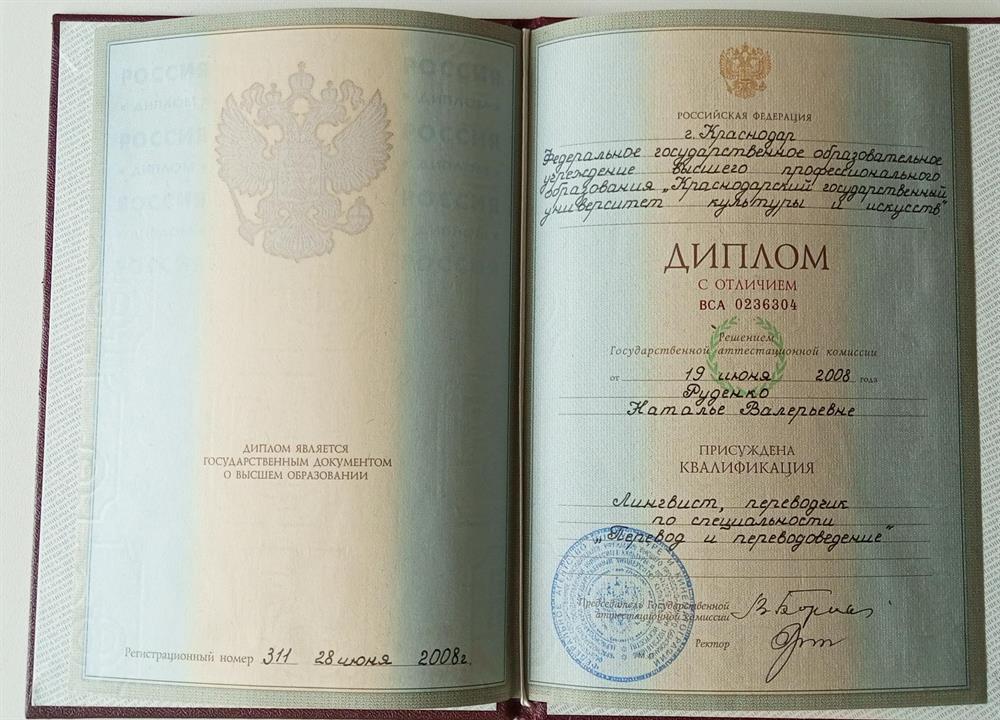 РОССИЯ
РОССИЯ
РОССИЯ
РОССИЯ
ДИПЛОМ ЯВЛЯЕТСЯ
ГОСУДАРСТВЕННЫМ ДОКУМЕНТОМ
О ВЫСШЕМ ОБРАЗОВАНИИ
Регистрационный номер 311 28 июня 2008г.
РОССИЙСКАЯ ФЕДЕРАЦИЯ
г. Краснодар
Федеральное государственное образовательное
учреждение высшего профессионального
образования „Краснодарский государственный
университет культуры и искусств"
ДИПЛОМ
С ОТЛИЧИЕМ
ВСА 0236304
Решением
Государственной аттестационной комиссии
от 19 июня 2008 года
Руденко
Наталье Валерьевне
ПРИСУЖДЕНА
КВАЛИФИКАЦИЯ
Лингвист, переводчик
по специальности
„Перевод и переводоведение"
Председатель Государственной
аттестационной комиссии
Ректор